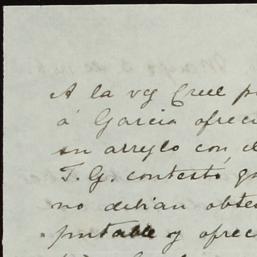 A la vez Creel p
á Garcia ofreci
un arreglo con el
T. G. contestó qu
no debian obte
y ofrec